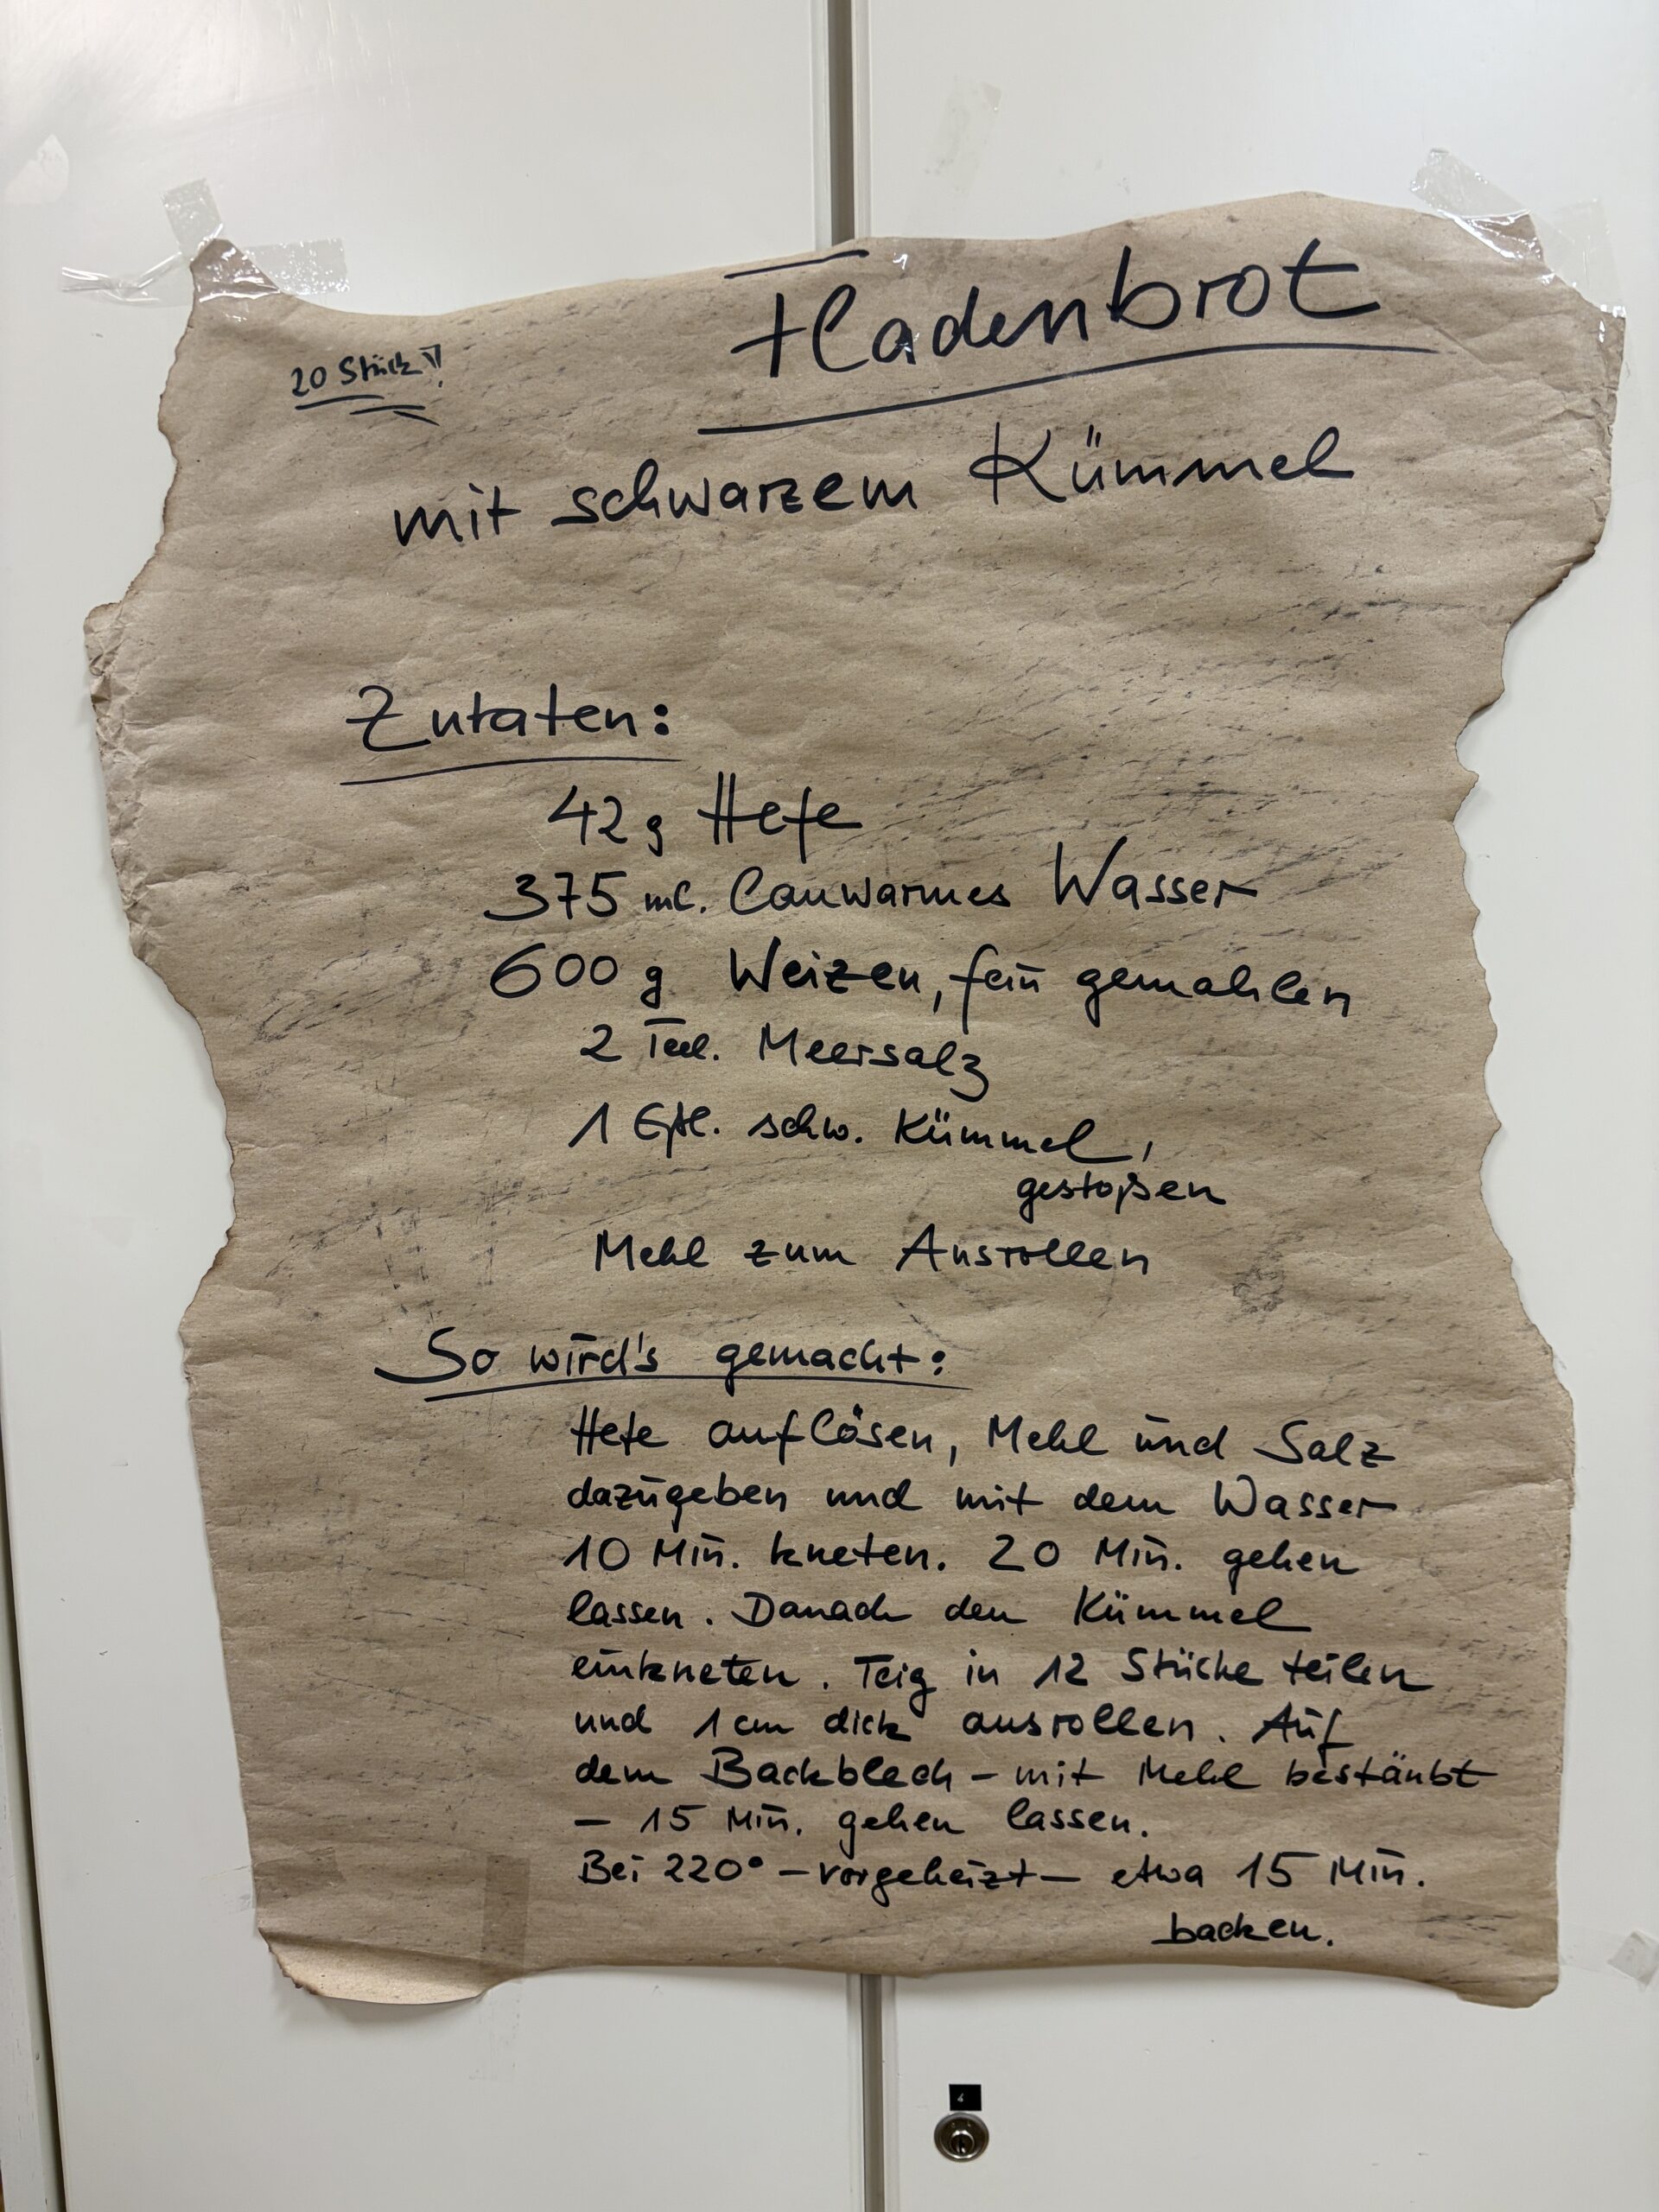 Fladenbrot
20 Stück!!
mit schwarzem Kümmel
Zutaten:
42g Hefe
375 ml. lauwarmes Wasser
600 g Weizen, fein gemahlen
2 Teel. Meersalz
1 Eßl. schw. Kümmel,
gestoßen
Mehl zum Ausrollen
So wird's gemacht:
Hefe auflösen, Mehl und Salz
dazugeben und mit dem Wasser
10 Min. kneten. 20 Min. gehen
lassen. Danach den Kümmel
einkneten. Teig in 12 Stücke teilen
und 1cm dick ausrollen. Auf
dem Backblech - mit Mehl bestäubt
- 15 Min. gehen lassen.
Bei 220° - vorgeheizt - etwa 15 Min.
backen.